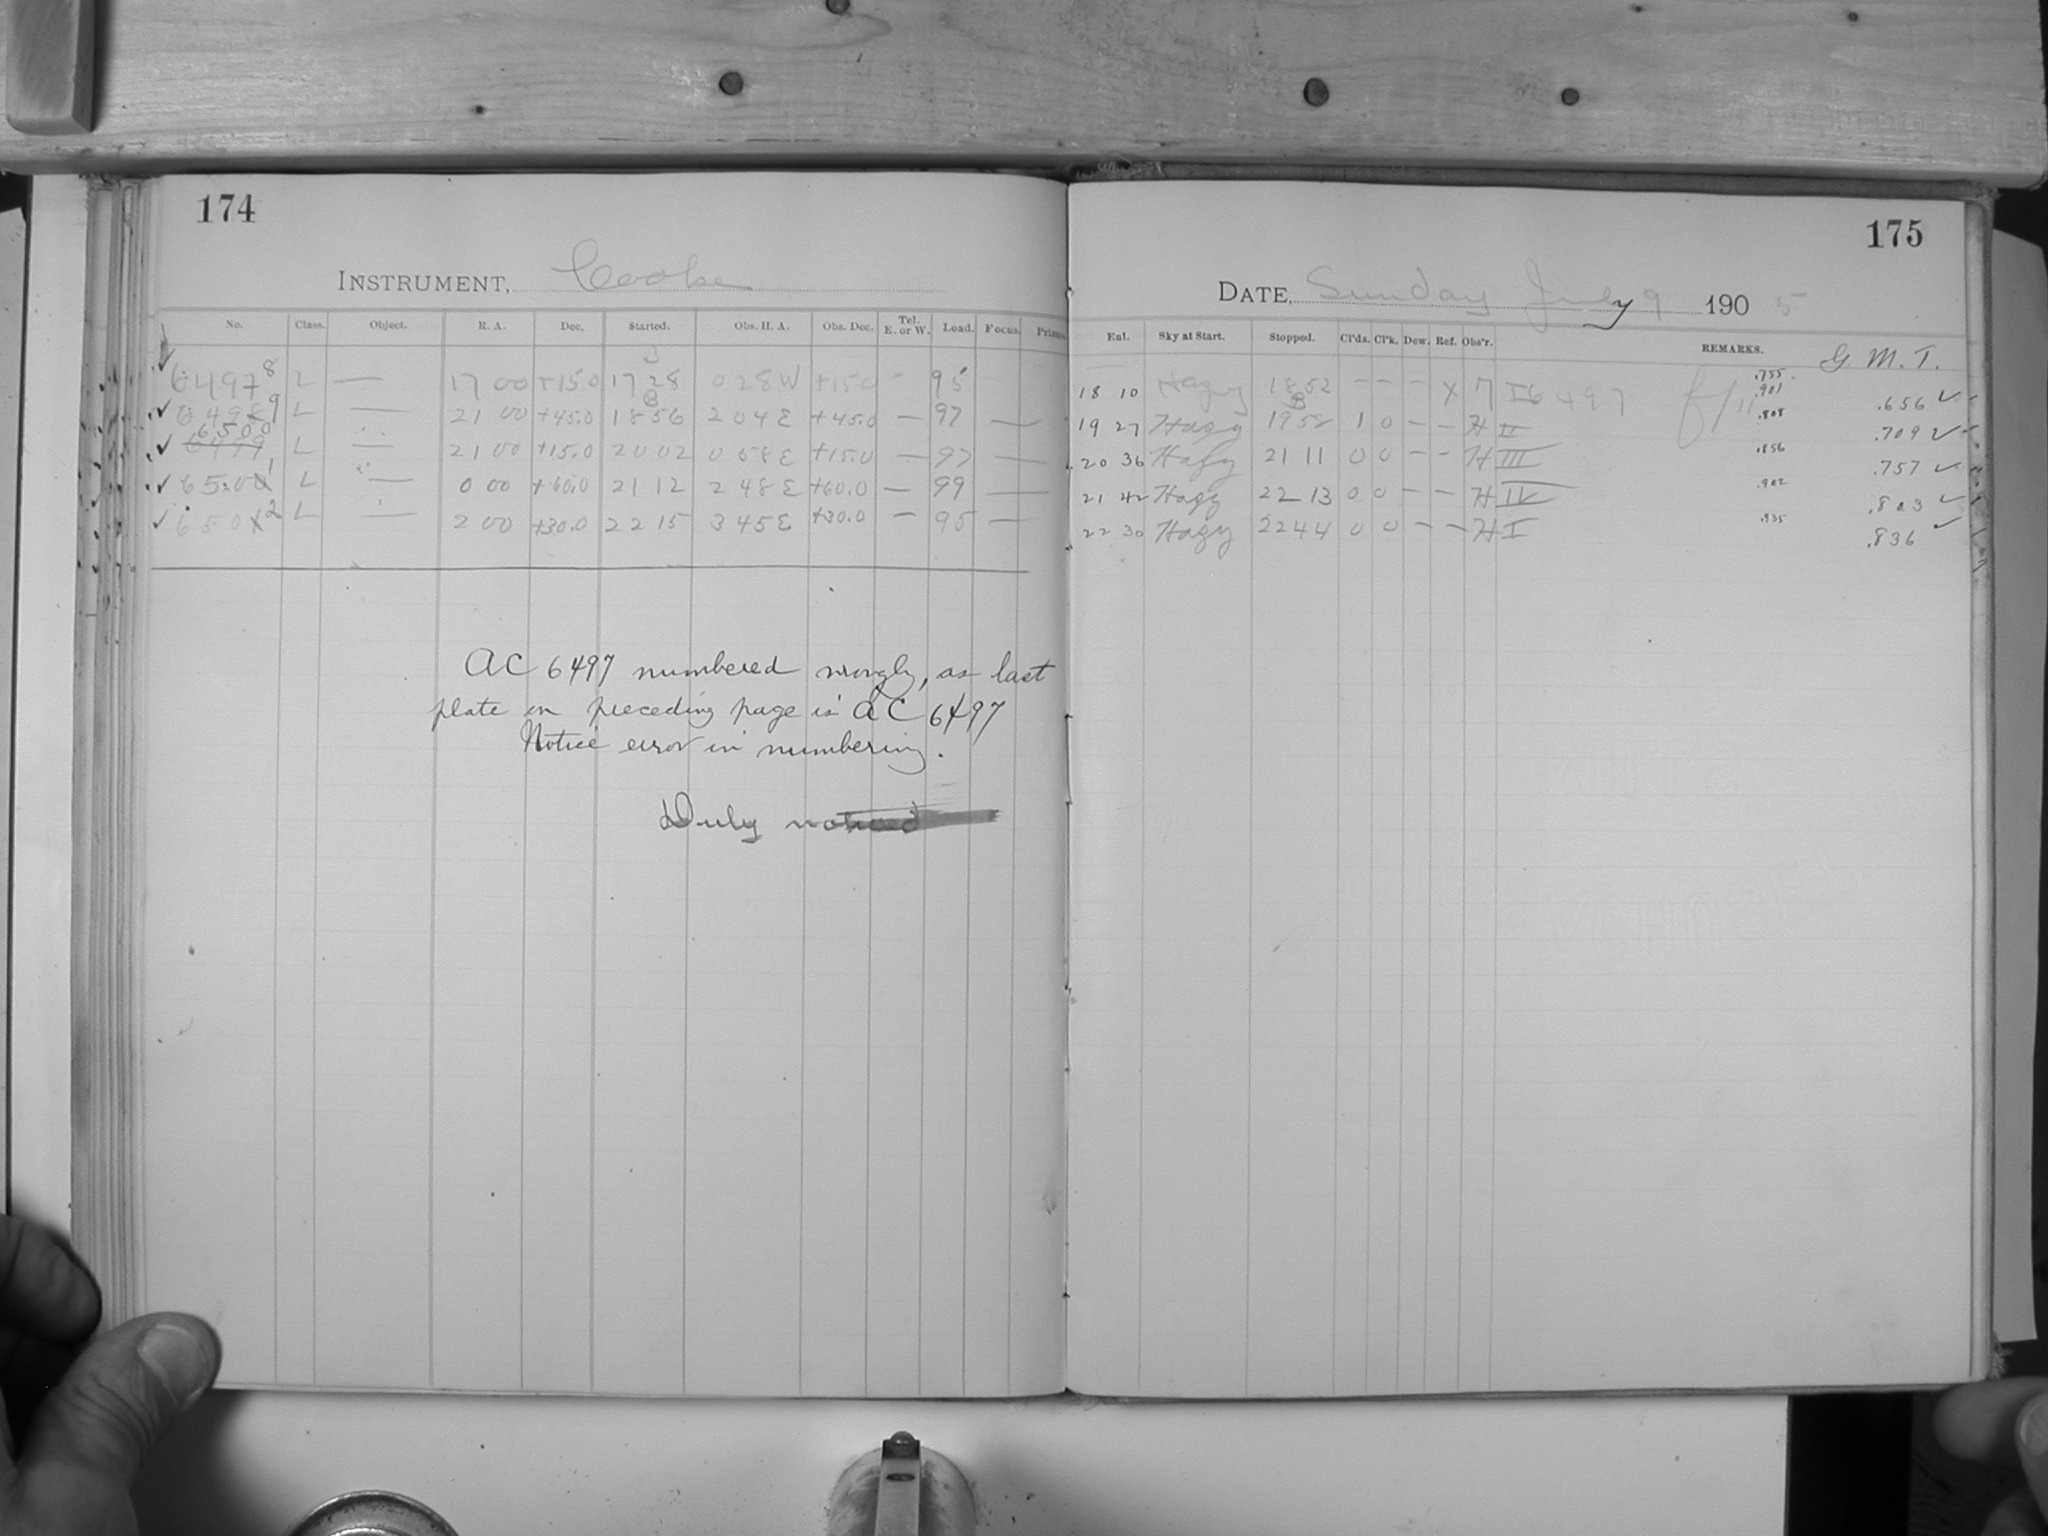 174
INSTRUMENT, Cooke
No. Class. Object. R. A. Dec. Started. Obs. H. A. Obs. Dec. Tel. E. or W. Load. Focus. Prism
B
64978 L — 17 00 +15.0 17 28 0 28 W +15.0 - 95 -
B
64989 L — 21 00 +45.0 18 56 2 04 E +45.0 — 97 —
6500
6499 L — 21 00 +15.0 20 02 0 58 E +15.0 — 97 —
65001 L — 0 00 +60.0 21 12 2 48 E +60.0 — 99 —
65012 L — 2 00 +30.0 22 15 3 45 E +30.0 — 95 —
AC 6497 numbered wrongly, as last
plate on preceding page is AC 6497
Notice error in numbering.
Duly noticed
175
DATE, Sunday July 9 1905
Ent. Sky at Start. Stopped. Cl'ds. Cl'k. Dew. Ref. Obs'r. REMARKS. G. M. T.
18 10 Hazy 18 52 - - - X H I 6497 f/11 .755 .901 .656 ✓
B
19 27 Hazy 19 58 1 0 - - H II .808 .709 ✓
20 36 Hazy 21 11 0 0 - - H III .856 .757 ✓
21 42 Hazy 22 13 0 0 - - H IV .902 .803 ✓
22 30 Hazy 22 44 0 0 - - H I .935 .836 ✓